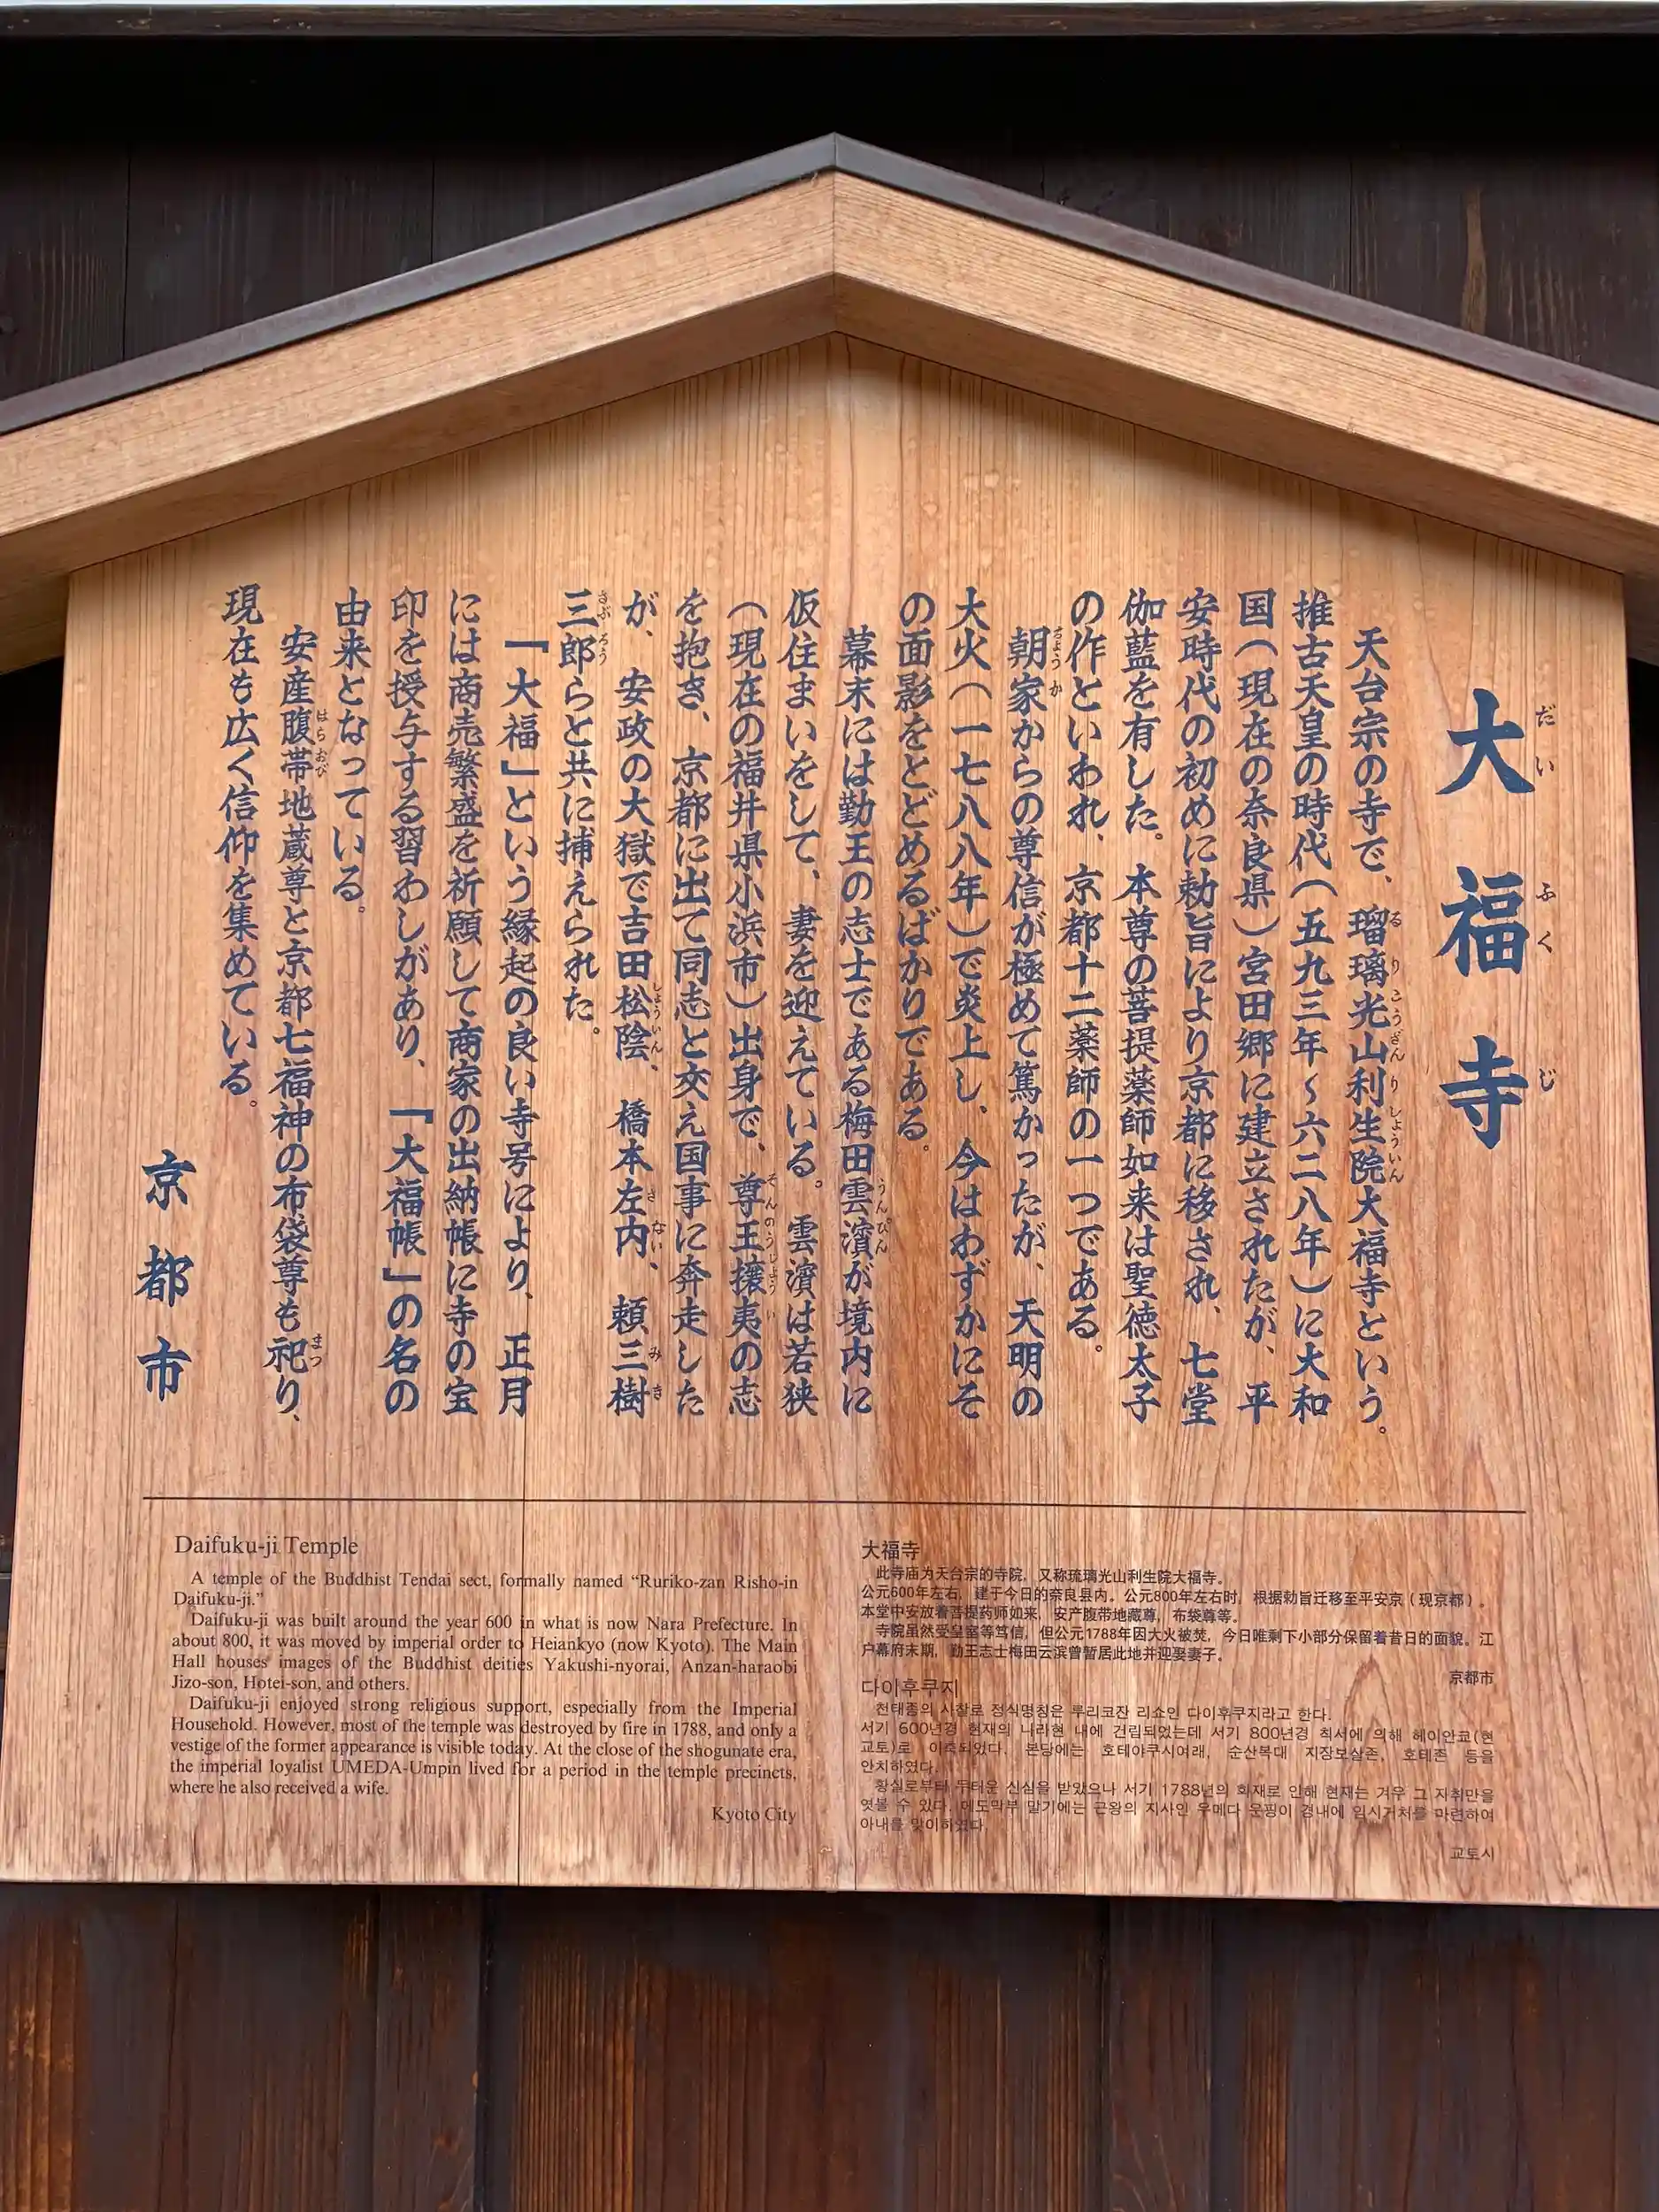 大福寺
天台宗の寺で、瑠璃光山利生院大福寺という。
推古天皇の時代（五九三年～六二八年）に大和
国（現在の奈良県）宮田郷に建立されたが、平
安時代の初めに勅旨により京都に移され、七堂
伽藍を有した。本尊の菩提薬師如来は聖徳太子
の作といわれ、京都十二薬師の一つである。
朝家からの尊信が極めて篤かったが、天明の
大火（一七八八年）で炎上し、今はわずかにそ
の面影をとどめるばかりである。
幕末には勤王の志士である梅田雲濱が境内に
仮住まいをして、妻を迎えている。雲濱は若狭
（現在の福井県小浜市）出身で、尊王攘夷の志
を抱き、京都に出て同志と交え国事に奔走した
が、安政の大獄で吉田松陰、橋本左内、頼三樹
三郎らと共に捕えられた。
「大福」という縁起の良い寺号により、正月
には商売繁盛を祈願して商家の出納帳に寺の宝
印を授与する習わしがあり、「大福帳」の名の
由来となっている。
安産腹帯地蔵尊と京都七福神の布袋尊も祀り、
現在も広く信仰を集めている。
京都市
Daifuku-ji Temple
A temple of the Buddhist Tendai sect, formally named “Ruriko-zan Risho-in
Daifuku-ji.”
Daifuku-ji was built around the year 600 in what is now Nara Prefecture. In
about 800, it was moved by imperial order to Heiankyo (now Kyoto). The Main
Hall houses images of the Buddhist deities Yakushi-nyorai, Anzan-haraobi
Jizo-son, Hotei-son, and others.
Daifuku-ji enjoyed strong religious support, especially from the Imperial
Household. However, most of the temple was destroyed by fire in 1788, and only a
vestige of the former appearance is visible today. At the close of the shogunate era,
the imperial loyalist UMEDA-Umpin lived for a period in the temple precincts,
where he also received a wife.
Kyoto City
大福寺
此寺庙为天台宗的寺院，又称琉璃光山利生院大福寺。
公元600年左右，建于今日的奈良县内。公元800年左右时，根据勅旨迁移至平安京（现京都）。
本堂中安放着菩提药师如来，安产腹带地藏尊，布袋尊等。
寺院虽然受皇室等笃信，但公元1788年因大火被焚，今日唯剩下小部分保留着昔日的面貌。江
户幕府末期，勤王志士梅田云滨曾暂居此地并迎娶妻子。
京都市
다이후쿠지
천태종의 사찰로 정식명칭은 루리코잔 리쇼인 다이후쿠지라고 한다.
서기 600년경 현재의 나라현 내에 건립되었는데 서기 800년경 칙서에 의해 헤이안쿄(현
교토)로 이축되었다. 본당에는 호테야쿠시여래, 순산복대 지장보살존, 호테존 등을
안치하였다.
황실로부터 두터운 신심을 받았으나 서기 1788년의 화재로 인해 현재는 겨우 그 자취만을
엿볼 수 있다. 에도막부 말기에는 근왕의 지사인 우메다 운핑이 경내에 임시거처를 마련하여
아내를 맞이하였다.
교토시